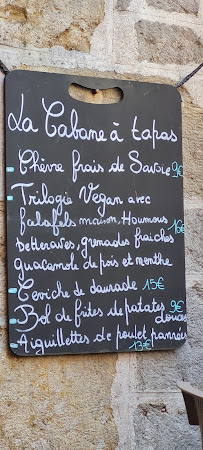 La Cabane à tapas
Chèvre frais de Savoie 9€
Trilogie Vegan avec
falafels maison, Houmous 16€
betteraves, grenades fraiches
guacamole de pois et menthe
Ceviche de daurade 15€
Bol de frites de patates 9€
douces
Aiguillettes de poulet pannées
13€